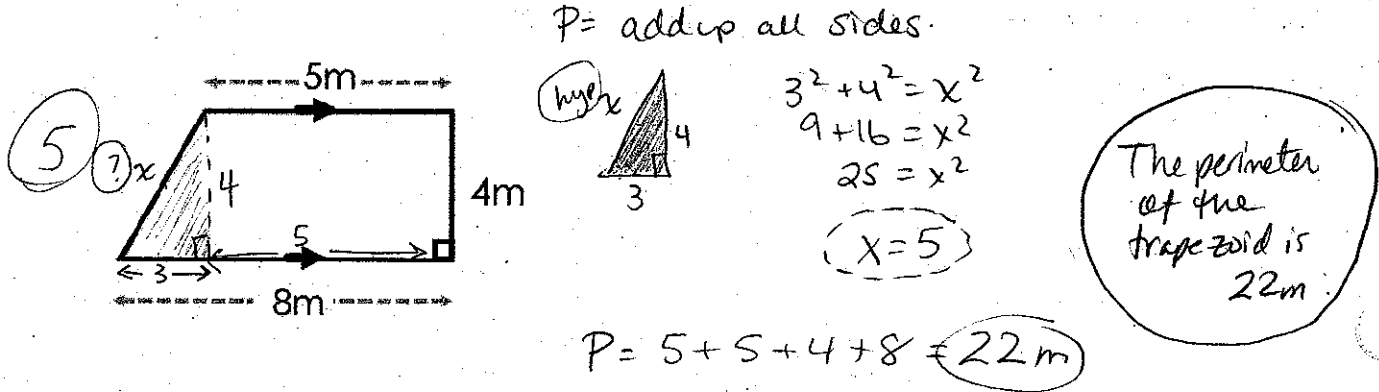 P= add up all sides.
5m
5
? x
4
4m
5
3
8m
hyp x
4
3
3² + 4² = x²
9 + 16 = x²
25 = x²
x = 5
The perimeter
of the
trapezoid is
22m.
P = 5 + 5 + 4 + 8 = 22m